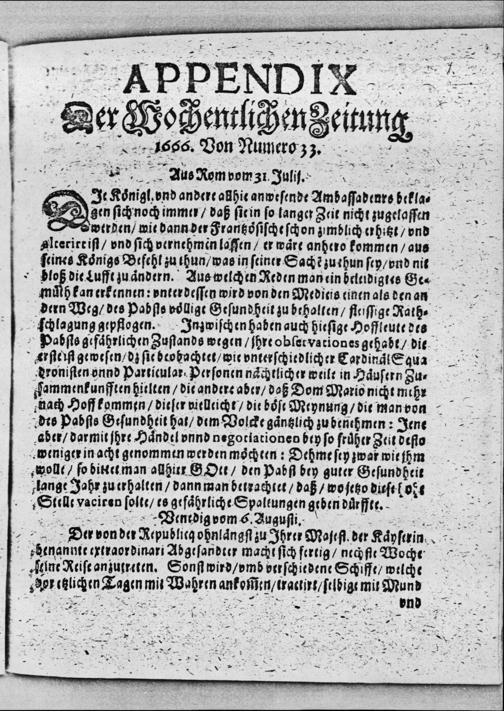 APPENDIX
Der Wochentlichen Zeitung
1666. Von Numero 33.
Aus Rom vom 31. Julij.
DJe Königl. vnd andere allhie anwesende Ambassadeurs bekla-
gen sich noch immer / daß sie in so langer Zeit nicht zugelassen
werden / wie dann der Frantzösische schon zimblich erhitzt / vnd
alterirt ist / vnd sich vernehmen lassen / er wäre anhero kommen / aus
seines Königs Befehl zu thun / was in seiner Sache zu thun sey / vnd nit
bloß die Lufft zu ändern. Aus welchen Reden man ein beleidigtes Ge-
müth kan erkennen: vnterdessen wird von den Medicis einen als den an
dern Weg / des Pabsts völlige Gesundheit zu behalten / fleissige Rath-
schlagung gepflogen. Inzwischen haben auch hiesige Hoffleute des
Pabsts gefährlichen Zustands wegen / ihre observationes gehabt / die
erste ist gewesen / dz sie beobachtet / wie vnterschiedlicher Cardinäl Squa
dronisten vnnd Particular-Personen nächtlicher weile in Häusern Zu-
sammenkunfften hielten / die andere aber / daß Dom Mario nicht mehr
nach Hoff kommen / dieser vielleicht / die böse Meynung / die man von
des Pabsts Gesundheit hat / dem Volcke gäntzlich zu benehmen: Jene
aber / darmit ihre Händel vnnd negociationen bey so früher Zeit desto
weniger in acht genommen werden möchten: Dehme sey zwar wie ihm
wolle / so bittet man allhier GOtt / den Pabst bey guter Gesundheit
lange Jahr zu erhalten / dann man betrachtet / daß / wo jetzo diese
Stelle vaciren solte / es gefährliche Spaltungen geben dürffte.
Venedig vom 6. Augusti.
Der von der Republicq ohnlängst zu Ihrer Majest. der Käyserin
benannte extraordinari Abgesandter macht sich fertig / nechste Woche
seine Reise anzutreten. Sonst wird / vmb verschiedene Schiffe / welche
vor etzlichen Tagen mit Wahren ankommen / tractirt / selbige mit Mund
vnd